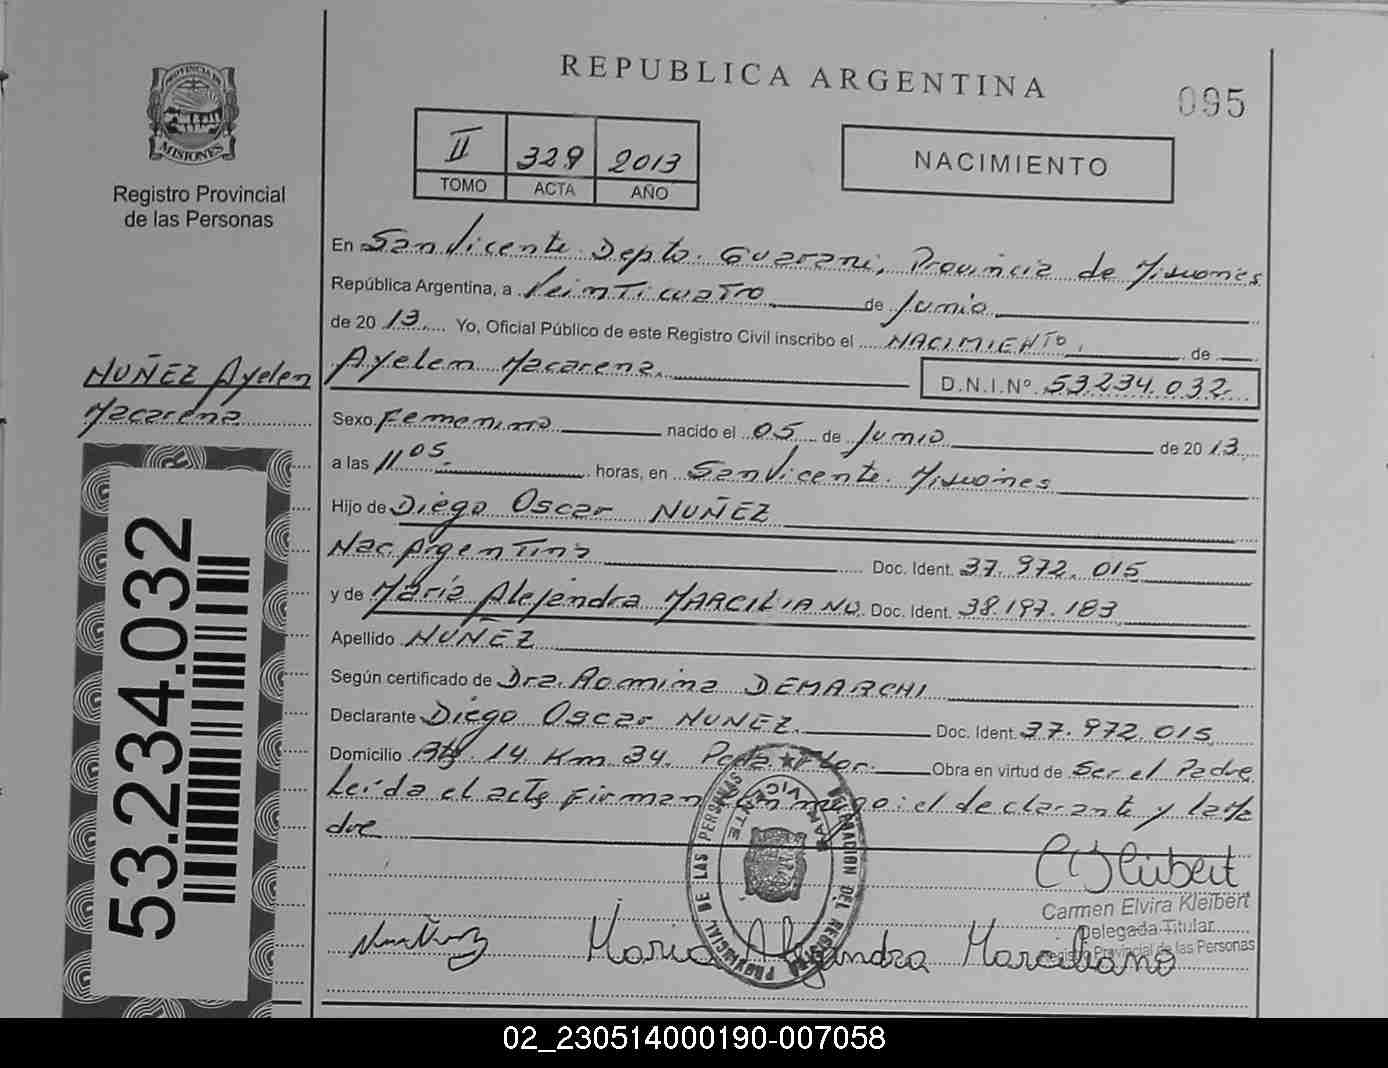 REPUBLICA ARGENTINA
095
PROVINCIA DE
MISIONES
Registro Provincial
de las Personas
II 329 2013
TOMO ACTA AÑO
NACIMIENTO
En San Vicente Depto. Guaraní, Provincia de Misiones
República Argentina, a Veinticuatro de Junio
de 2013 Yo, Oficial Público de este Registro Civil inscribo el NACIMIENTO, de
Ayelen Macarena. D.N.I.Nº 53.234.032
NUÑEZ Ayelen
Macarena
Sexo Femenino nacido el 05 de Junio de 2013
a las 11 05 horas, en San Vicente. Misiones
Hijo de Diego Oscar NUÑEZ
Nac. Argentina Doc. Ident. 37.972.015
y de María Alejandra MARCILIANO. Doc. Ident. 38.197.183
Apellido NUÑEZ
Según certificado de Dra. Romina DEMARCHI
Declarante Diego Oscar NUÑEZ. Doc. Ident. 37.972.015
Domicilio 14 Km 34. Pcda. Flor. Obra en virtud de Ser el Padre
Leída el acta firman conmigo: el declarante y la Ma
dre
53.234.032
DELEGACION DEL REGISTRO PROVINCIAL DE LAS PERSONAS
SAN VICENTE
Carmen Elvira Kleibert
Delegada Titular
Registro Provincial de las Personas
Maria Alejandra Marciliano
02_230514000190-007058